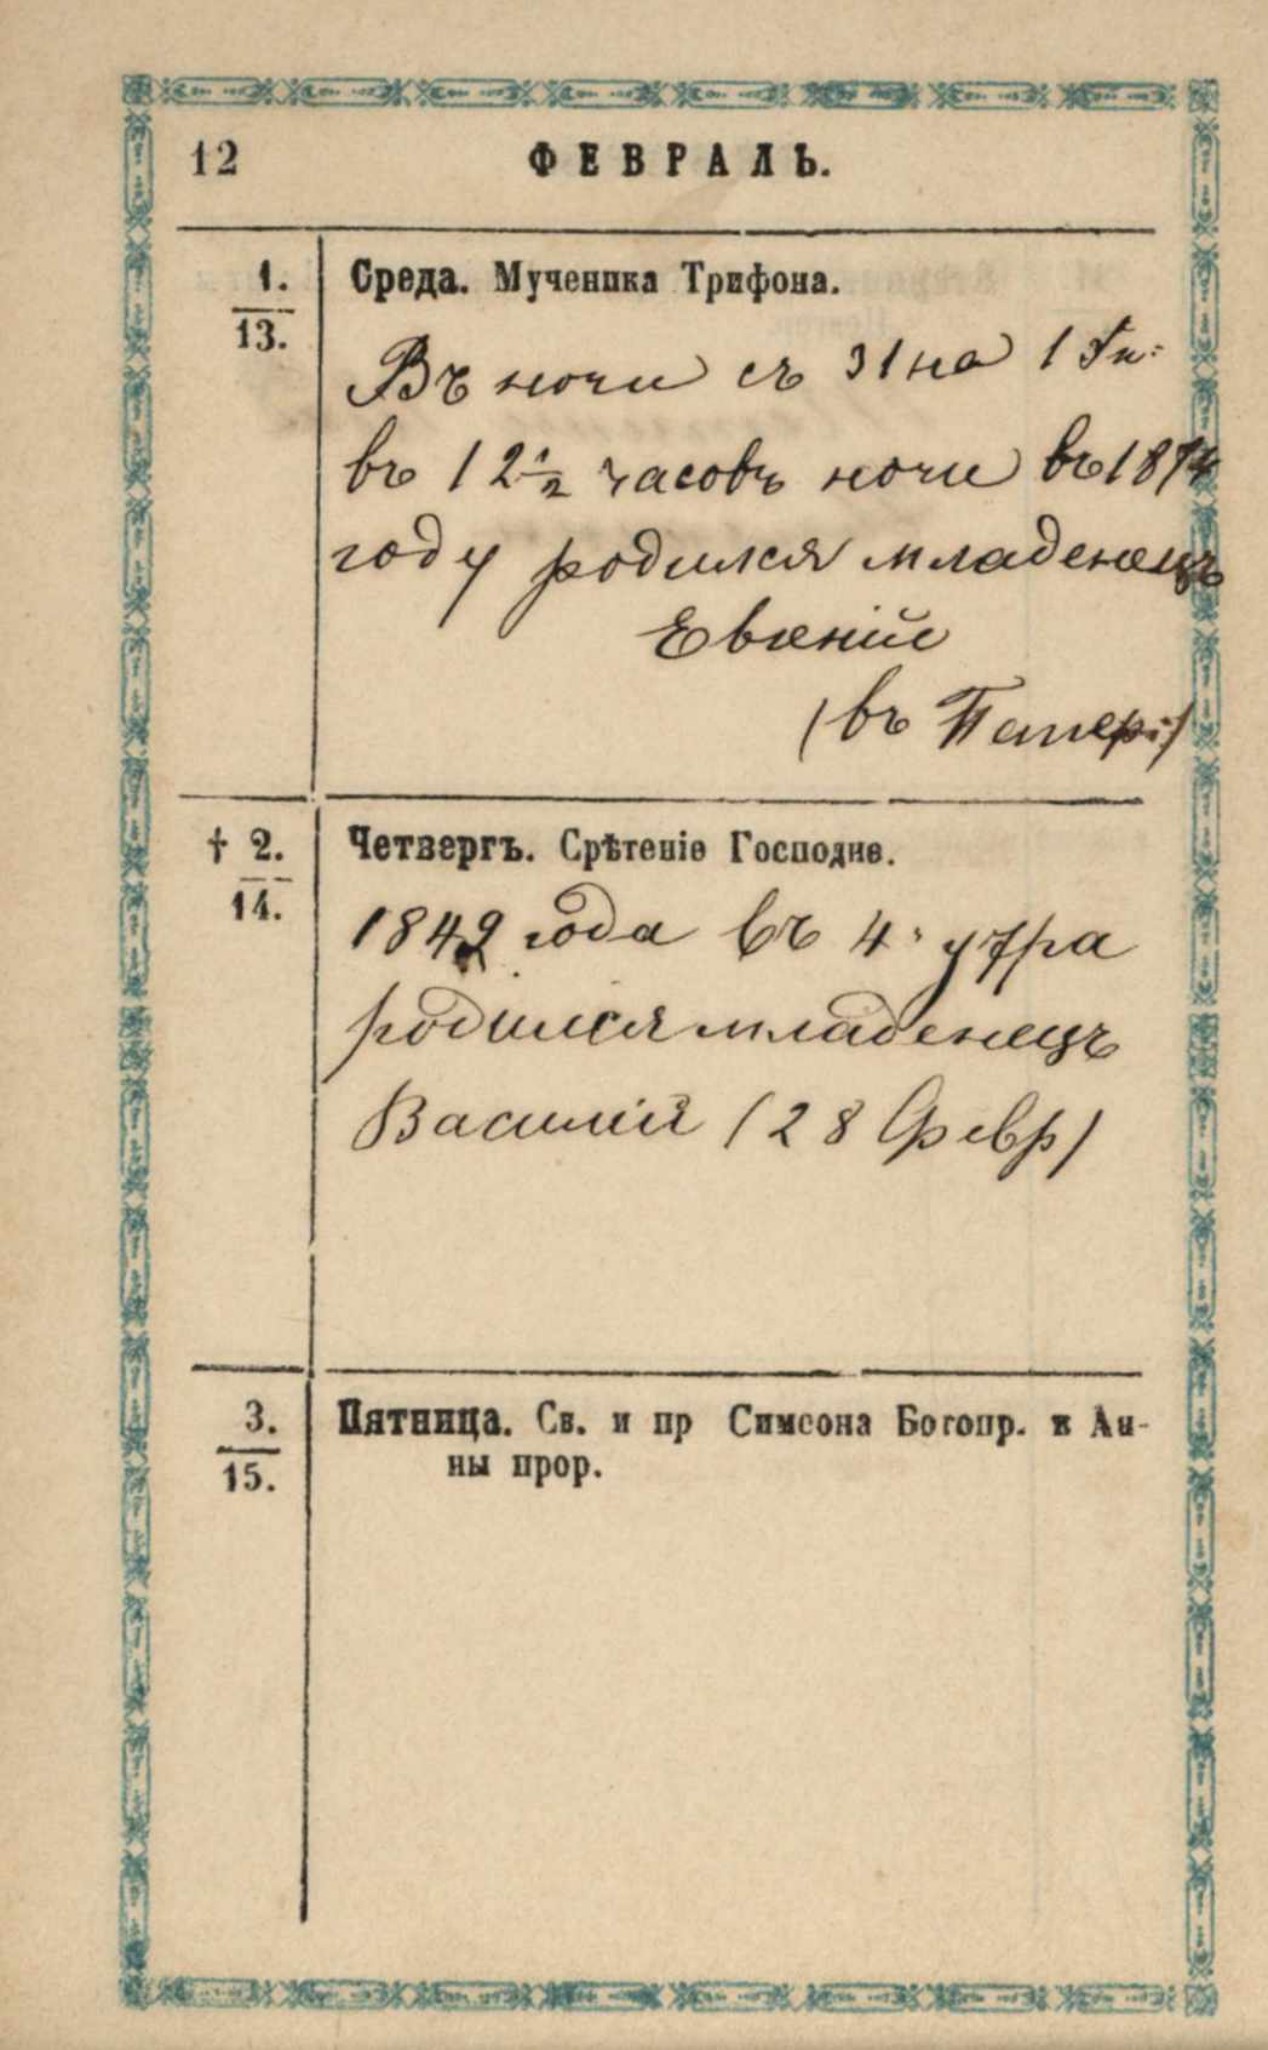 12 ФЕВРАЛЬ.
1.
13.
Среда. Мученика Трифона.
Въ ночи съ 31 на 1
въ 12 1/2 часовъ ночи въ 1874
году родился младенецъ
Евгеній
(въ
† 2.
14.
Четвергъ. Срѣтеніе Господне.
1849 года въ 4 утра
родился младенецъ
Василій (28 Февр)
3.
15.
Пятница. Св. и пр Симеона Богопр. и Ан-
ны прор.